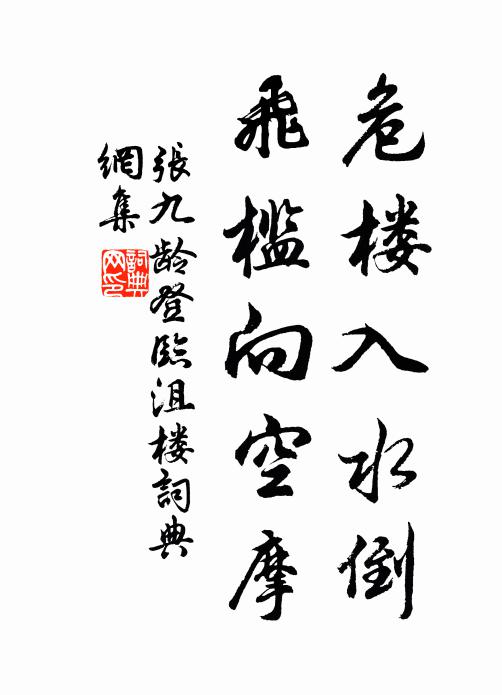 危楼入水倒
飛槛向空摩
張九龄登臨沮楼詞典
網集
詞典
网印